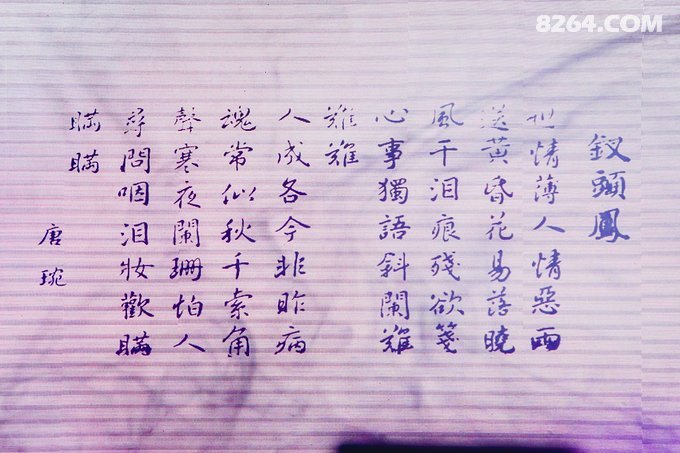 8264.COM
釵頭鳳
世情薄人情惡雨
送黃昏花易落曉
風干泪痕殘欲箋
心事獨語斜闌難
難難
人成各今非昨病
魂常似秋千索角
聲寒夜闌珊怕人
尋問咽泪妝歡瞞
瞞瞞
唐琬